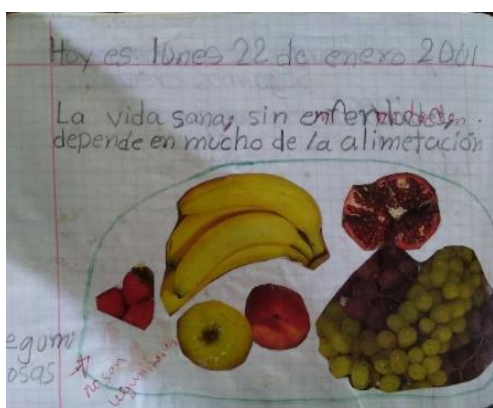 Hoy es lunes 22 de enero 2001
La vida sana, sin
depende en mucho de la alimetación
egumi
osas
no son
leguminosas